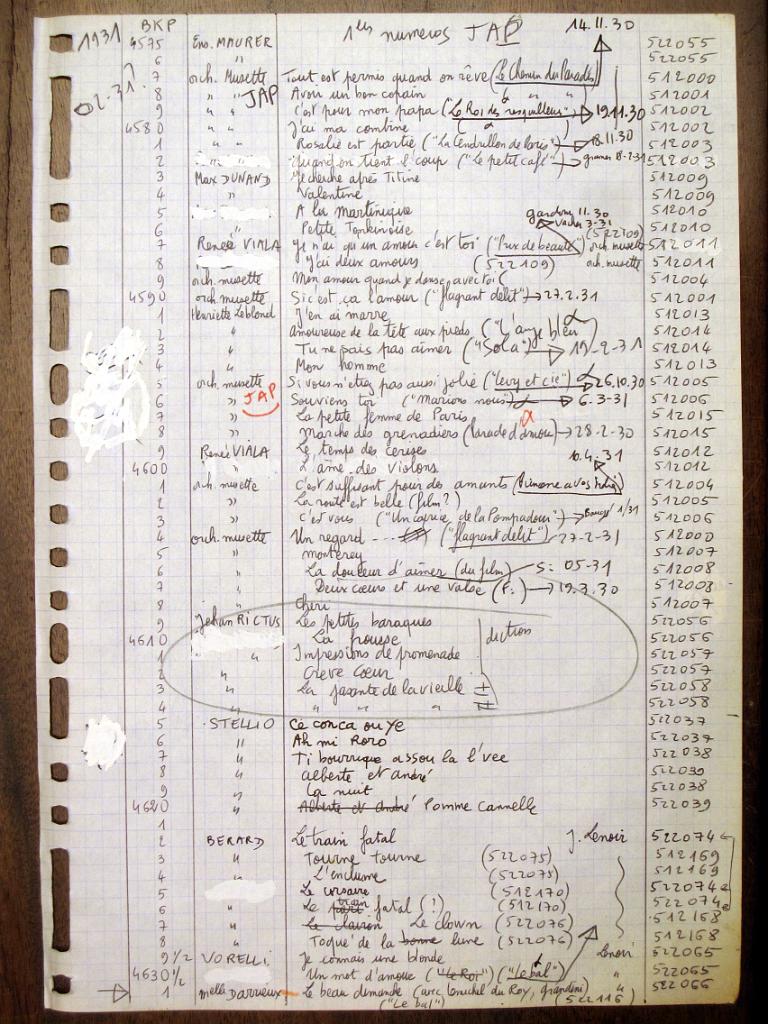 1931 BKP 1ers numeros JAP 14.11.30
4575 Ens. MAURER 522055
6 522055
02.31? 7 orch. Musette Tout est permis quand on rêve (Le Chemin du Paradis) 512000
8 " " JAP Avoir un bon copain ( " " " 512001
9 " " c'est pour mon papa ("Le Roi des resquilleurs") → 19.11.30 512002
4580 " " J'ai ma combine ( " ) 512002
1 " " Rosalie est partie ("La Cendrillon de Paris") → 18.11.30 512003
2 quand on tient l'coup ("Le petit café") → 8-2-31 512003
3 Max DUNAND Je cherche après Titine 512009
4 " Valentine 512009
5 A la Martinique gandon 11.30 512010
6 " Petite Tonkinoise 3-31 (522109) 512010
7 Renée VIALA Je n'ai qu'un amour c'est toi ("Prix de beauté") orch musette 512011
8 J'ai deux amours (522109) orch. musette 512011
9 orch. musette Mon amour quand je danse avec toi ( 512004
4590 orch. musette Si c'est ça l'amour ("flagrant délit") → 27.2.31 512001
1 Henriette Leblond J'en ai marre 512013
2 " amoureuse de la tête aux pieds ("L'ange bleu") 512014
3 " Tu ne sais pas aimer ("Sola") → 19-2-31 512014
4 " Mon homme 512013
5 orch. musette Si vous n'étiez pas aussi jolie ("Levy et cie") → 26.10.30 512005
6 " JAP Souviens toi ("Marions nous") → 6.3-31 512006
7 " La petite femme de Paris 512015
8 " Marche des grenadiers (Parade d'amour) → 28-2-30 512015
9 Renée VIALA Le temps des cerises 512012
4600 " L'âme des violons 10.4.31 512012
1 orch. musette c'est suffisant pour des amants 512004
2 " La route est belle (film?) 512005
3 " c'est vous ("Un caprice de la Pompadour") → 1/31 512006
4 orch. musette Un regard ---- ("flagrant délit") 27-2-31 512000
5 " monterey 512007
6 " La douceur d'aimer (du film) S: 05-31 512008
7 " Deux cœurs et une valse (F.) → 19.3.30 512008
8 " Chéri 512007
9 Jehan RICTUS Les petites baraques diction 522056
4610 La frousse 522056
1 " Impressions de promenade 522057
2 " Crève Cœur 522057
3 " La jasante de la vieille I 522058
4 " " " " " II 522058
5 STELLIO Cé conça ou yé 522037
6 " Ah mi Roro 522037
7 " Ti bourrique assou la l'vee 522038
8 " alberte et andré 522039
9 " La nuit 522038
4620 " Alberte et andré Pomme Cannelle 522039
1
2 BERARD Le train fatal J. Lenoir 522074
3 " Tourne tourne (522075) 512169
4 " L'enclume (522075) 512169
5 Le corsaire (512170) 522074
6 " Le train fatal (!) (512170) 522074
7 " Le clairon Le clown (522076) 512168
8 " Toqué de la bonne lune (522076) 512168
9 1/2 VORELLI Je connais une blonde Lenoir 522065
4630 1/2 " Un mot d'amour ("Le Roi") ("Le bal") " 522065
→ 1 melle Darrieux Le beau dimanche (avec du Roy, ) " 522066
("Le bal") 522116